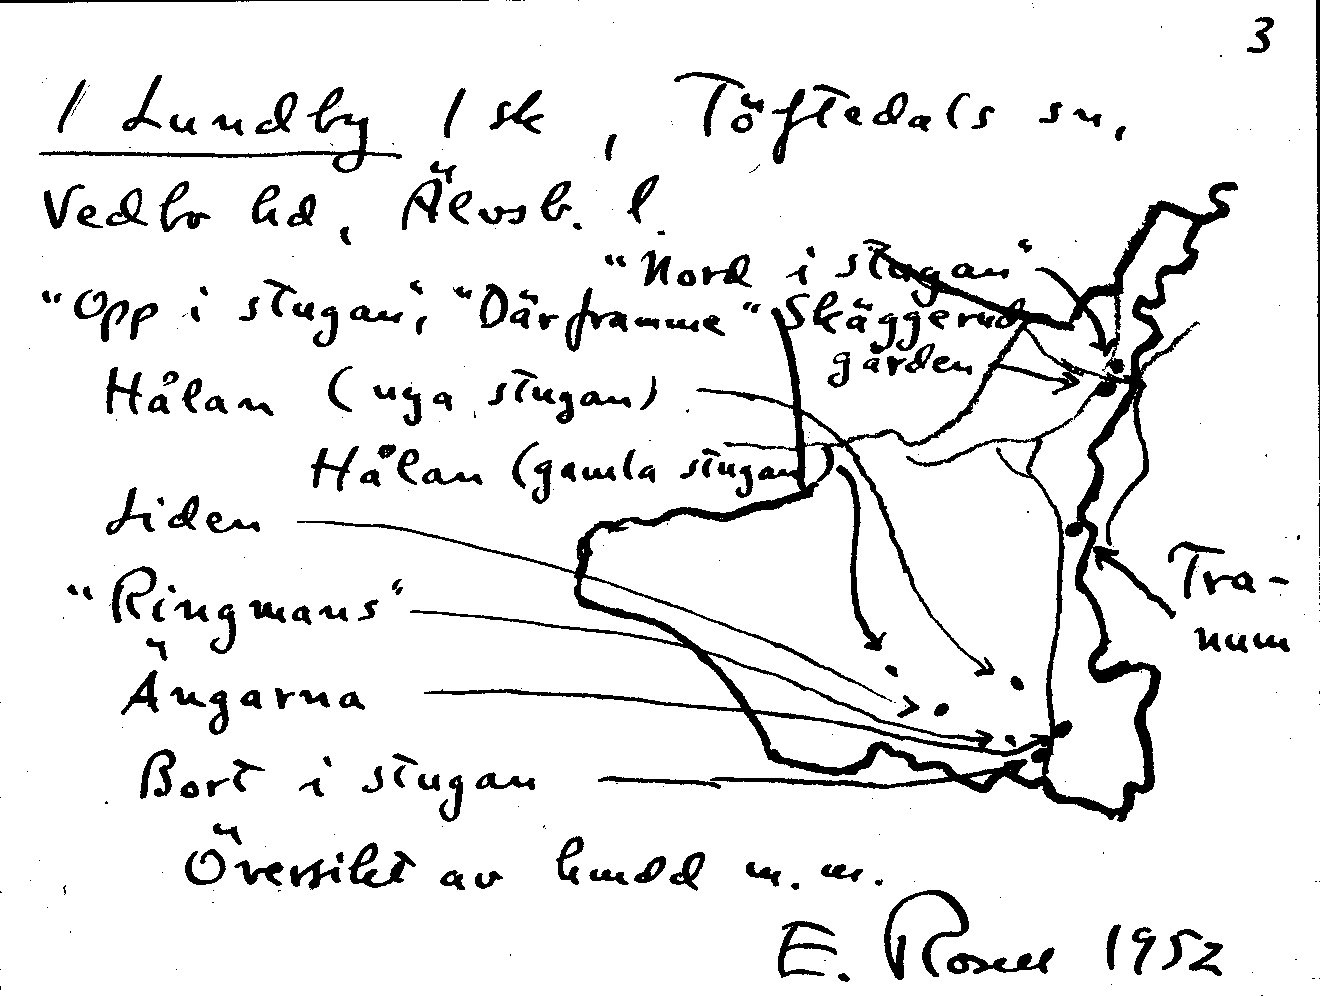 3
1 Lundby 1 sk, Töftedals sn,
Vedbo hd, Älvsb. l.
"Nord i stugan"
"Opp i stugan", "Därframme" Skäggerud
gården
Hålan (nya stugan)
Hålan (gamla stugan)
Liden
Tra-
"Ringmans"
num
Ängarna
Bort i stugan
Översikt av hmdd m.m.
E. Rosell 1952